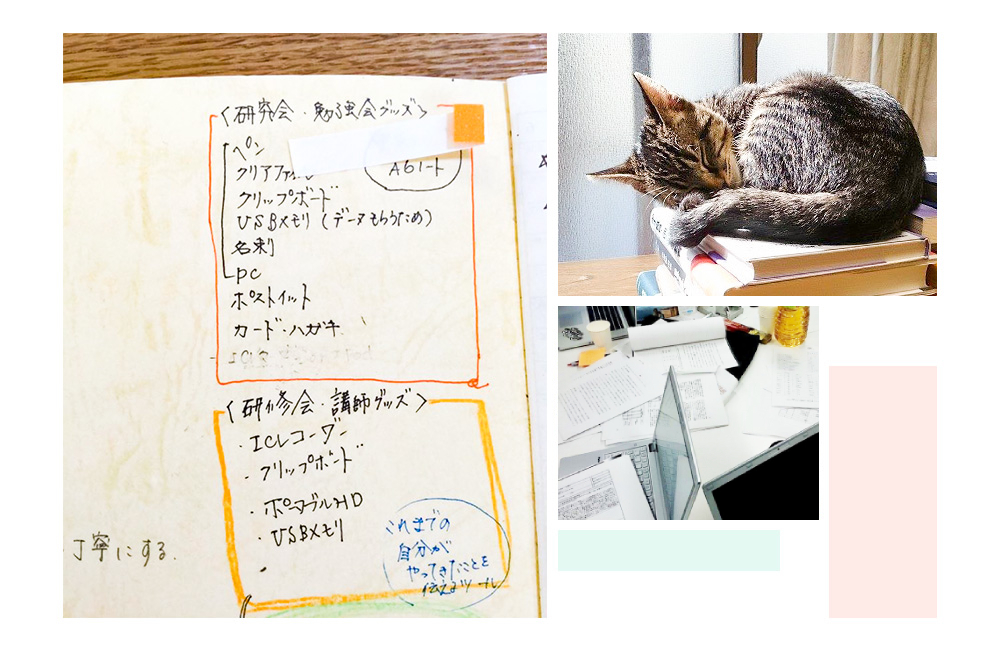 〈研究会・勉強会グッズ〉
ペン
A6ノート
クリアファイル
クリップボード
USBメモリ(データもらうため)
名刺
pc
ポストイット
カード・ハガキ
〈研修会・講師グッズ〉
・ICレコーダー
・クリップボード
・ポータブルHD
・USBメモリ
これまでの
自分が
やってきたことを
伝えるツール
丁寧にする.